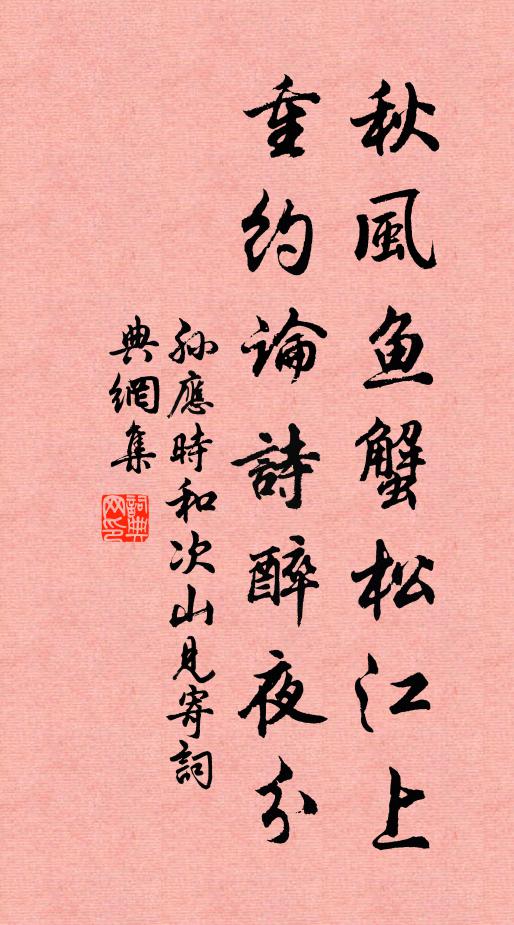 秋風魚蟹松江上
重約論詩醉夜分
孫應時和次山見寄詞
典網集
詞典网印